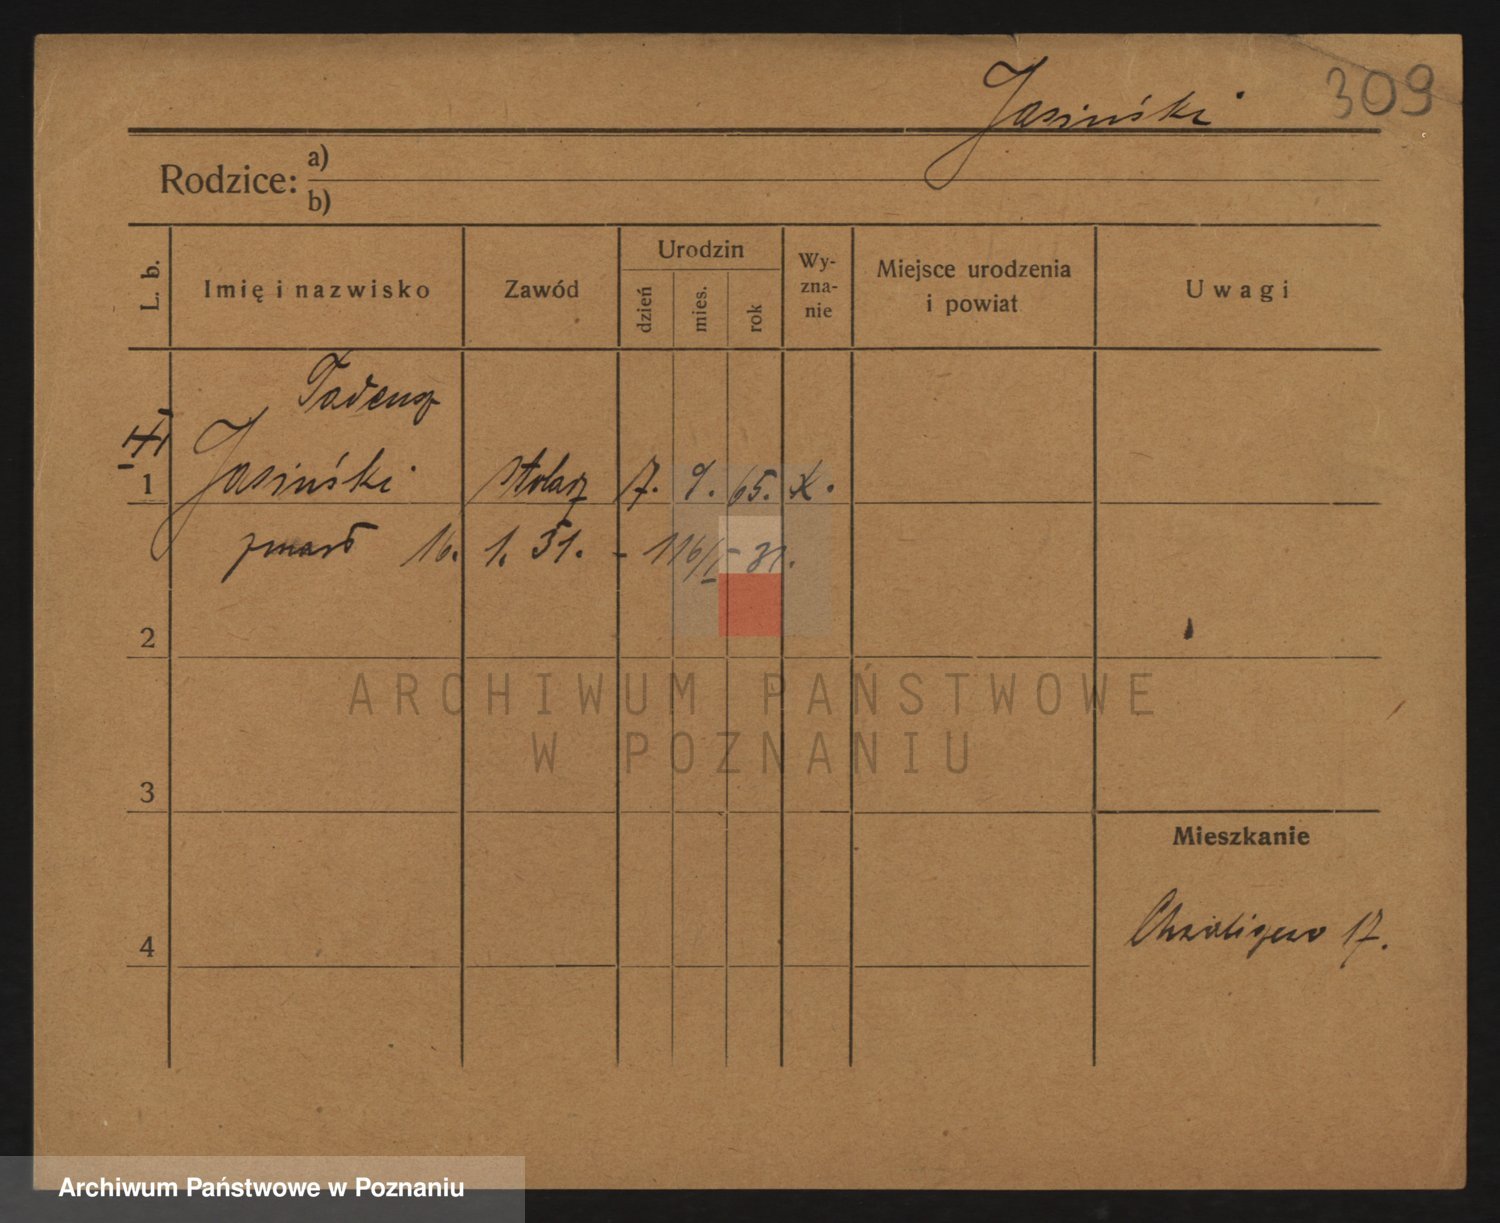 309
Jasiński
Rodzice: a)
b)
L. b.
Imię i nazwisko
Zawód
Urodzin
dzień
mies.
rok
Wy-
zna-
nie
Miejsce urodzenia
i powiat
Uwagi
Tadeusz
1 Jasiński stolarz 7. 9. 65.
zmarł 16. 1. 31. - 116/I - 31.
2
3
4
Mieszkanie
17.
ARCHIWUM PAŃSTWOWE
W POZNANIU
Archiwum Państwowe w Poznaniu